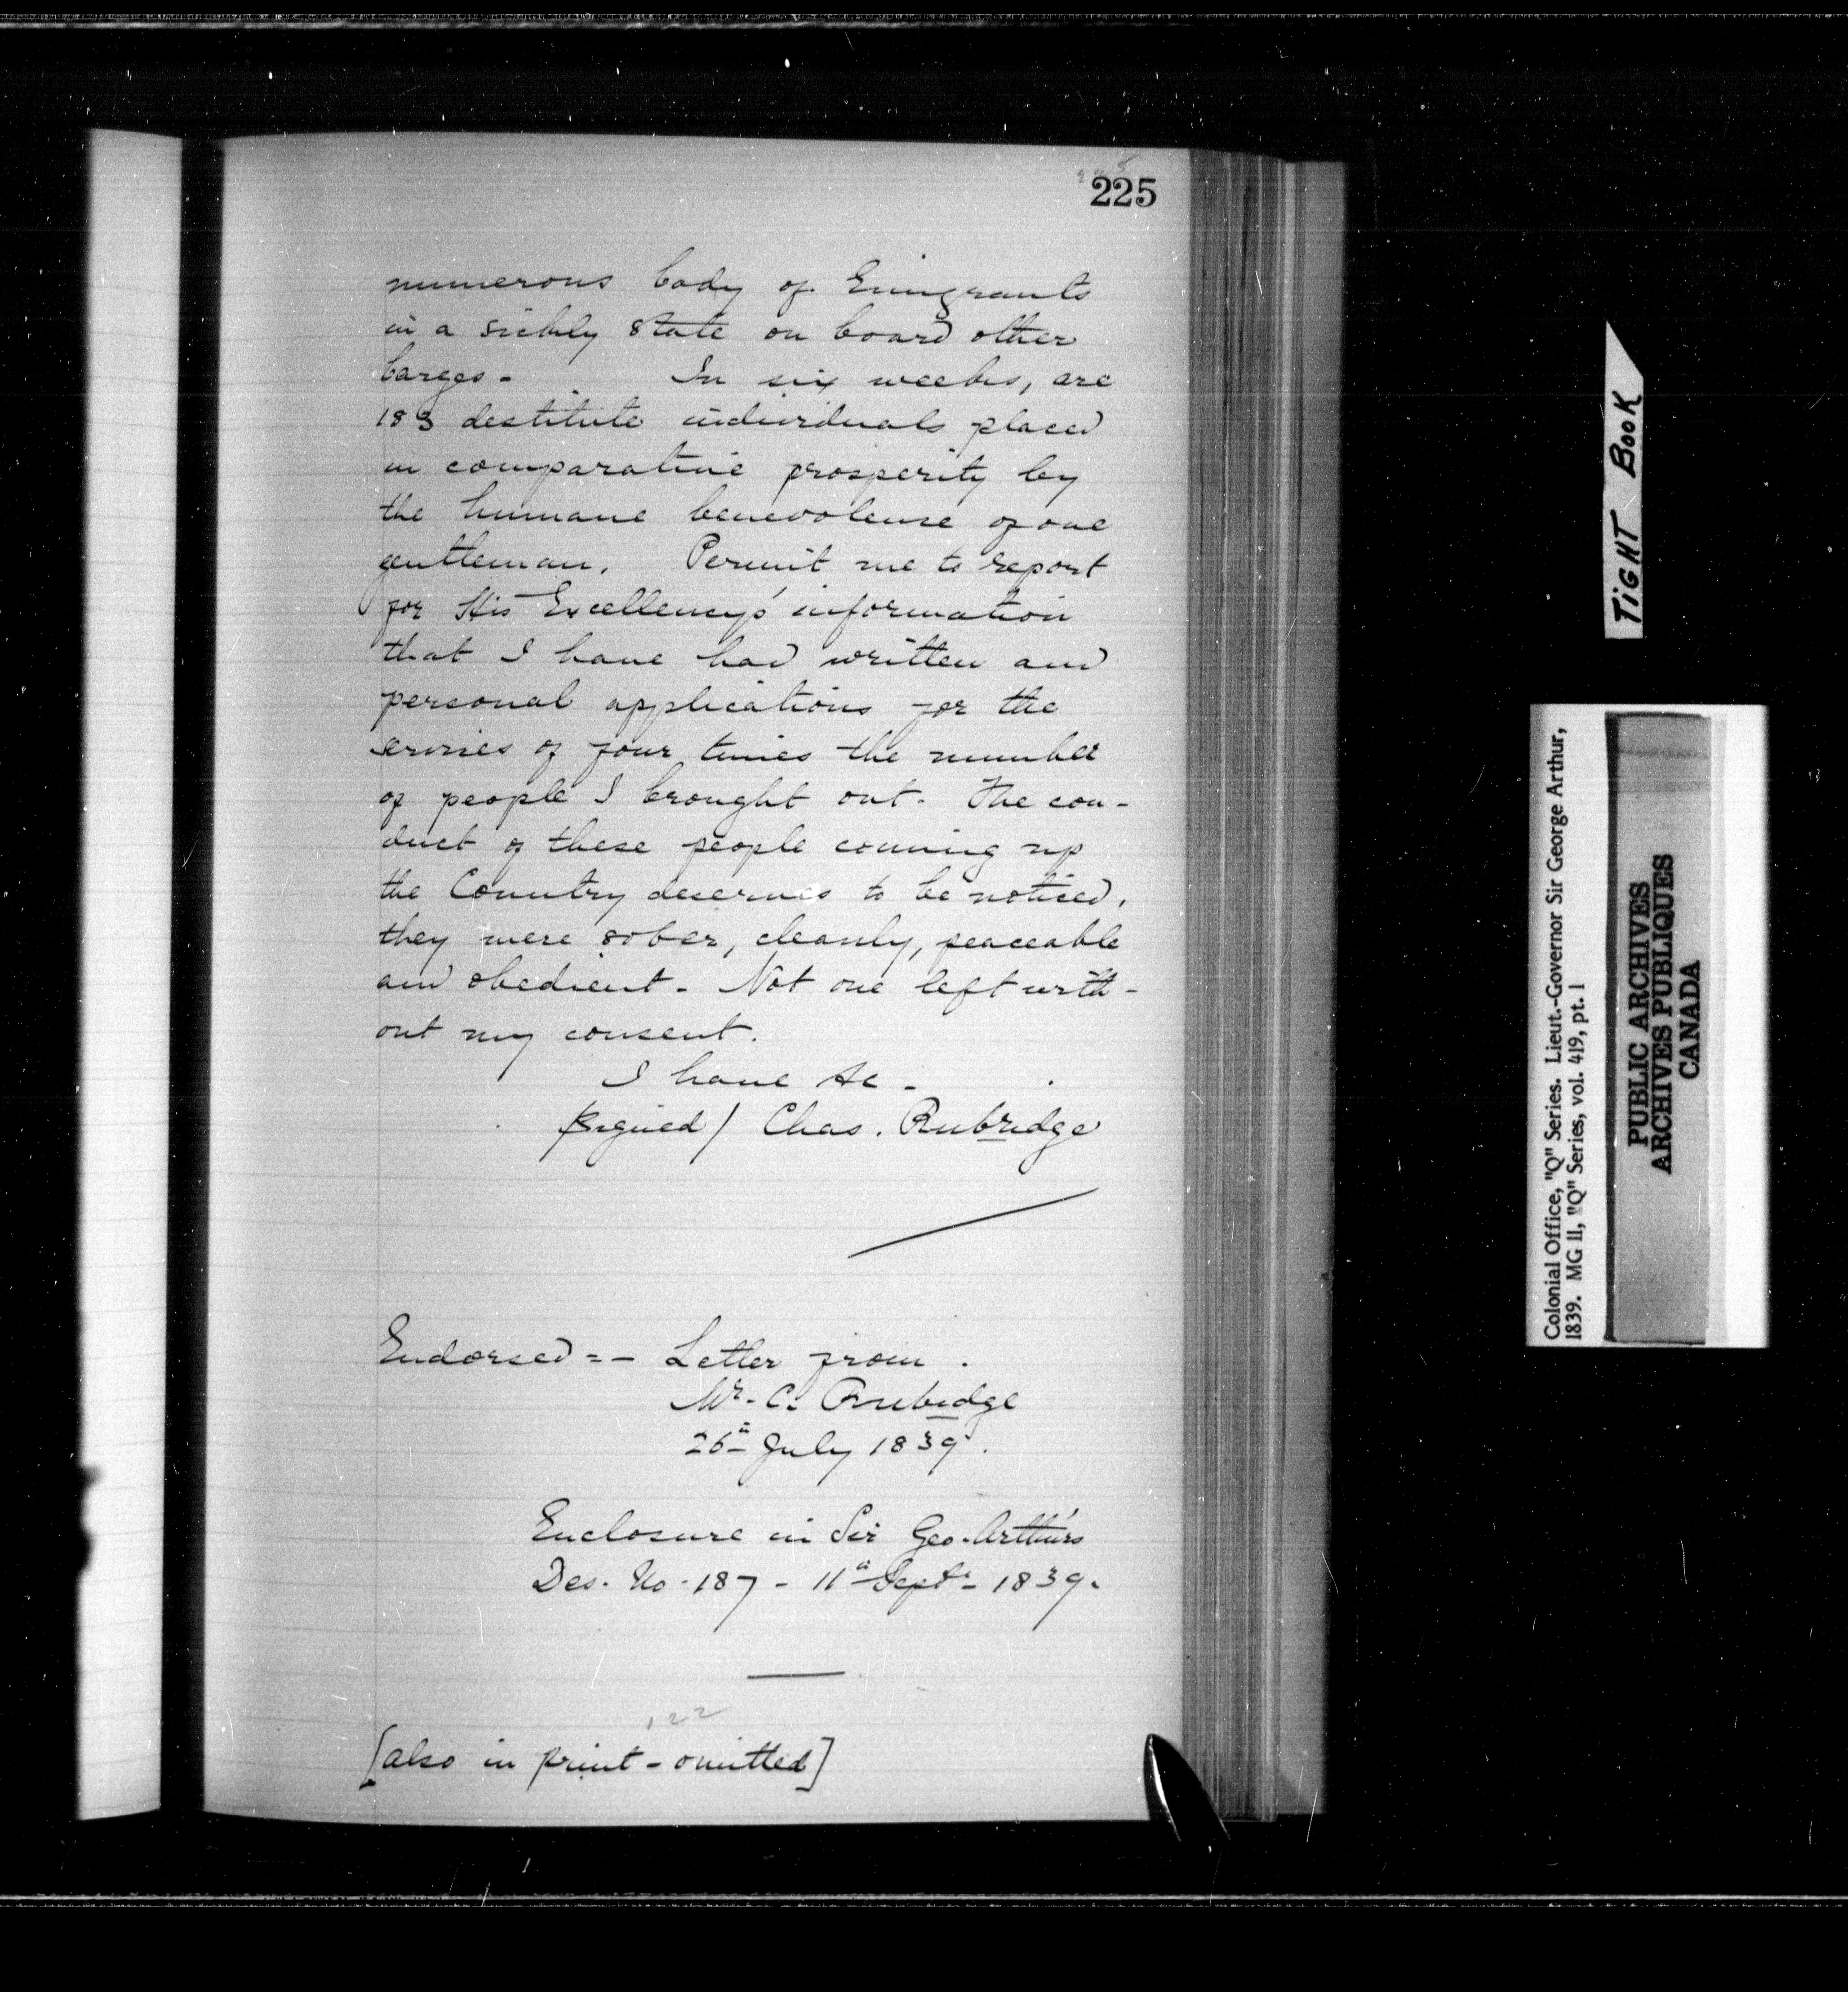 225
numerous body of Emigrants
in a sickly state on board other
barges - In six weeks, are
183 destitute individuals placed
in comparative prosperity by
the humane benevolense of one
gentleman. Permit me to report
for His Excellency's information
that I have had written and
personal applications for the
services of four times the number
of people I brought out. The con-
duct of these people coming up
the Country deserves to be noticed,
they were sober, cleanly, peaceable
and obedient - Not one left with-
out my consent.
I have &c -
(signed) Chas. Rubridge
Endorsed = - Letter from
Mr. C. Rubidge
26th July 1839.
Enclosure in Sir Geo. Arthur's
Des. No. 187 - 11th Sept. - 1839.
122
[also in print - omitted]
TIGHT BOOK
Colonial Office, "Q" Series. Lieut.-Governor Sir George Arthur,
1839. MG 11, "Q" Series, vol. 419, pt. 1
PUBLIC ARCHIVES
ARCHIVES PUBLIQUES
CANADA